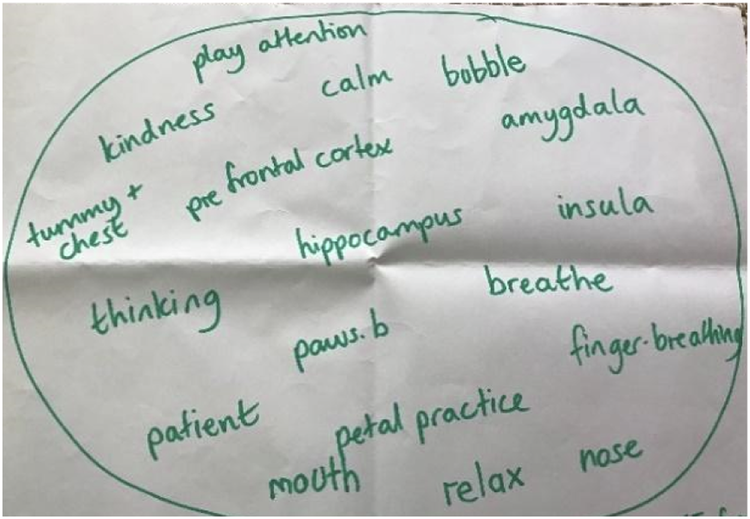 play attention
calm
bobble
kindness
amygdala
pre frontal cortex
tummy +
chest
hippocampus
insula
thinking
breathe
paws.b
finger-breathing
patient
petal practice
mouth
relax
nose